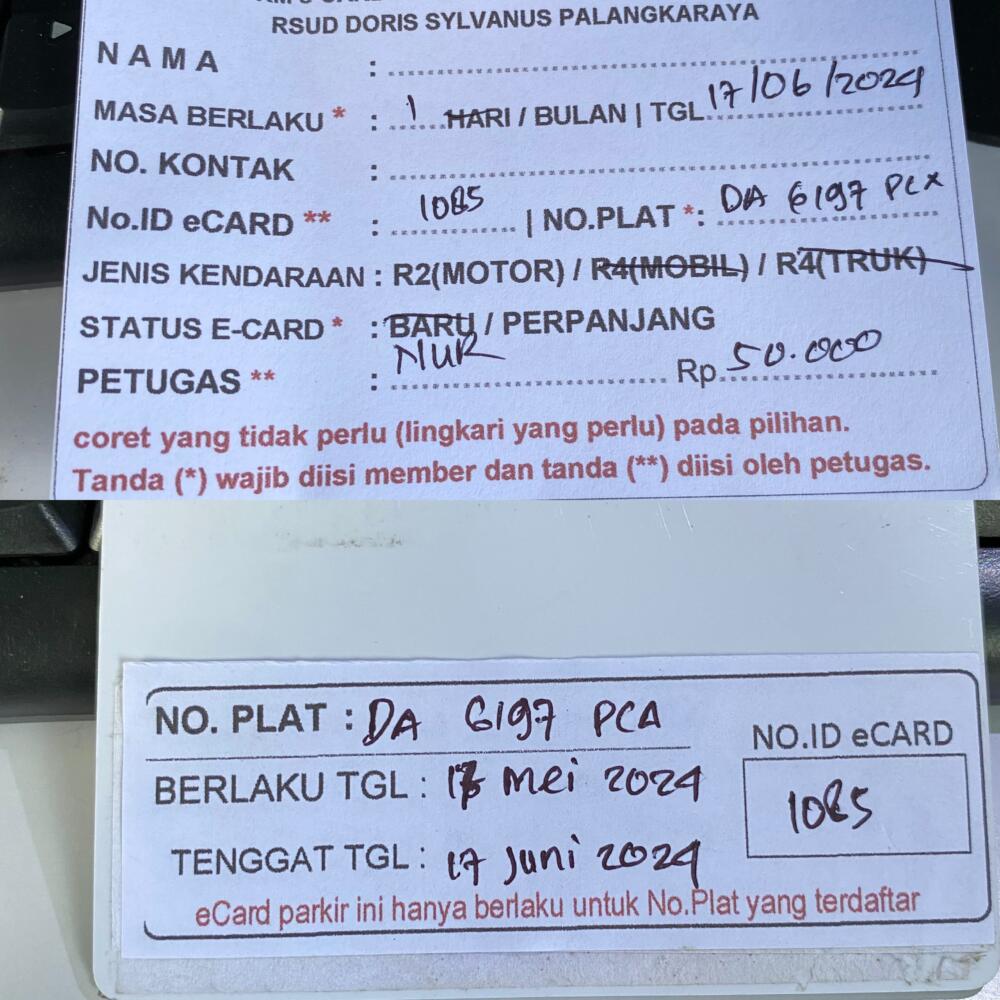 RSUD DORIS SYLVANUS PALANGKARAYA
NAMA :
MASA BERLAKU * : 1 HARI / BULAN | TGL 17/06/2024
NO. KONTAK :
No.ID eCARD ** : 1085 | NO.PLAT *: DA 6197 PCX
JENIS KENDARAAN : R2(MOTOR) / R4(MOBIL) / R4(TRUK)
STATUS E-CARD * : BARU / PERPANJANG
PETUGAS ** : NUR Rp 50.000
coret yang tidak perlu (lingkari yang perlu) pada pilihan.
Tanda (*) wajib diisi member dan tanda (**) diisi oleh petugas.
NO. PLAT : DA 6197 PCA
NO.ID eCARD
BERLAKU TGL : 17 Mei 2024
1085
TENGGAT TGL : 17 Juni 2024
eCard parkir ini hanya berlaku untuk No.Plat yang terdaftar